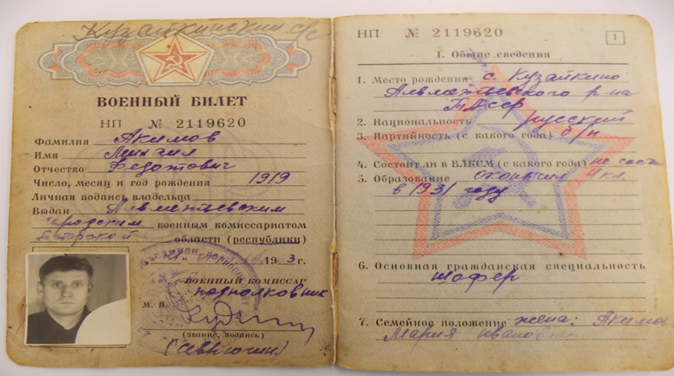 Кузайкинский с/с
ВОЕННЫЙ БИЛЕТ
НП № 2119620
Фамилия Акимов
Имя
Отчество Федотович
Число, месяц и год рождения 1919
Личная подпись владельца
Выдан Альметьевским
городским военным комиссариатом
Татарской области (республики)
1963 г.
ВОЕННЫЙ КОМИССАР
подполковник
М. П.
(звание, подпись)
НП № 2119620
1
I. Общие сведения
1. Место рождения с. Кузайкино
Альметьевского р-на
ТАССР
2. Национальность русский
3. Партийность (с какого года) б/п
4. Состоит ли в ВЛКСМ (с какого года) не сост
5. Образование окончил 4 кл.
в 1931 году
6. Основная гражданская специальность
шофер
7. Семейное положение жена: Акимова
Мария Ивановна